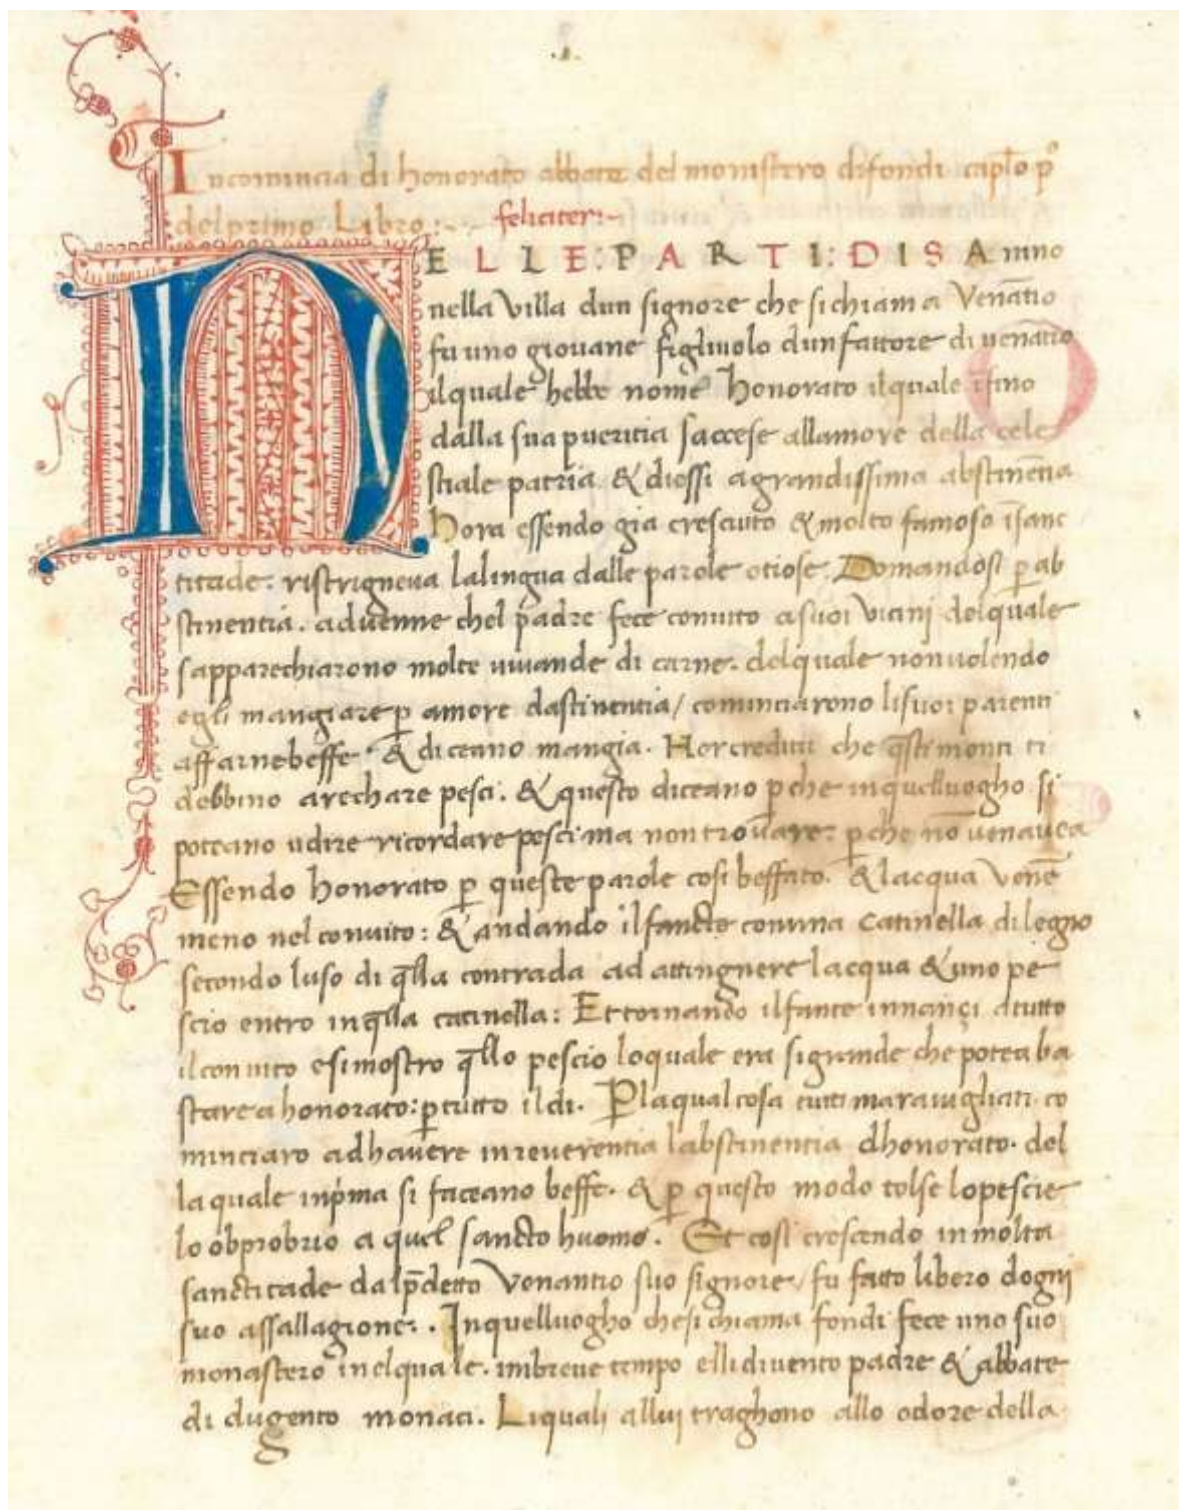 .1.
Incomincia di honorato abbate del monistero difondi capl̃o pº
delprimo Libro:~ feliciter:~
NELLE:PARTI:DISAnnno
nella villa dun signore che sichiama Venãtio
fu uno giouane figliuolo dunfattore di uenatio
ilquale hebbe nome honorato ilquale ifino
dalla sua pueritia saccese allamore della cele
stiale patria & diessi agrandissima abstinẽtia
hora essendo gia cresciuto & molto famoso ĩsanc
titade: ristrigneua lalingua dalle parole otiose. Domandosi ꝑ ab
stinentia. aduenne chel padre fece conuito asuoi vicinj delquale
sapparechiarono molte uiuande di carne. delquale nonuolendo
egli mangiare ꝑ amore dastinentia/ cominciarono lisuoi parenti
affarnebeffe & diceano mangia. Hor creditu che q̃stimonti ti
debbino arechare pesci. & questo diceano ꝑche inquelluogho si
poteano udire ricordare pesci ma non trouare: ꝑche nõ uenauea
Essendo honorato ꝑ queste parole cosi beffato. & lacqua venẽ
meno nel conuito: & andando ilfancte conuna catinella dilegno
secondo luso di q̃lla contrada ad attingnere lacqua & uno pe
scio entro inq̃lla catinella: Et tornando ilfante innançi atutto
ilconuito esimostro q̃llo pescio loquale era sigrande che potea ba
stare a honorato: ꝑtutto ildi. Ꝑlaqualcosa tutti marauigliati co
minciaro adhauere inreuerentia labstinentia dhonorato. del
la quale inp̃ma si faceano beffe. & ꝑ questo modo tolse lopescie
lo obprobrio a quel sancto huomo. Et cosi crescendo inmolta
sanctitade dalp̃detto Venantio suo signore/ fu fatto libero dognj
suo assallagione:. Inquelluogho chesichiama fondi fece uno suo
monastero inelquale. imbreue tempo elli diuento padre & abbate
di dugento monaci. Liquali allui traghono allo odore della